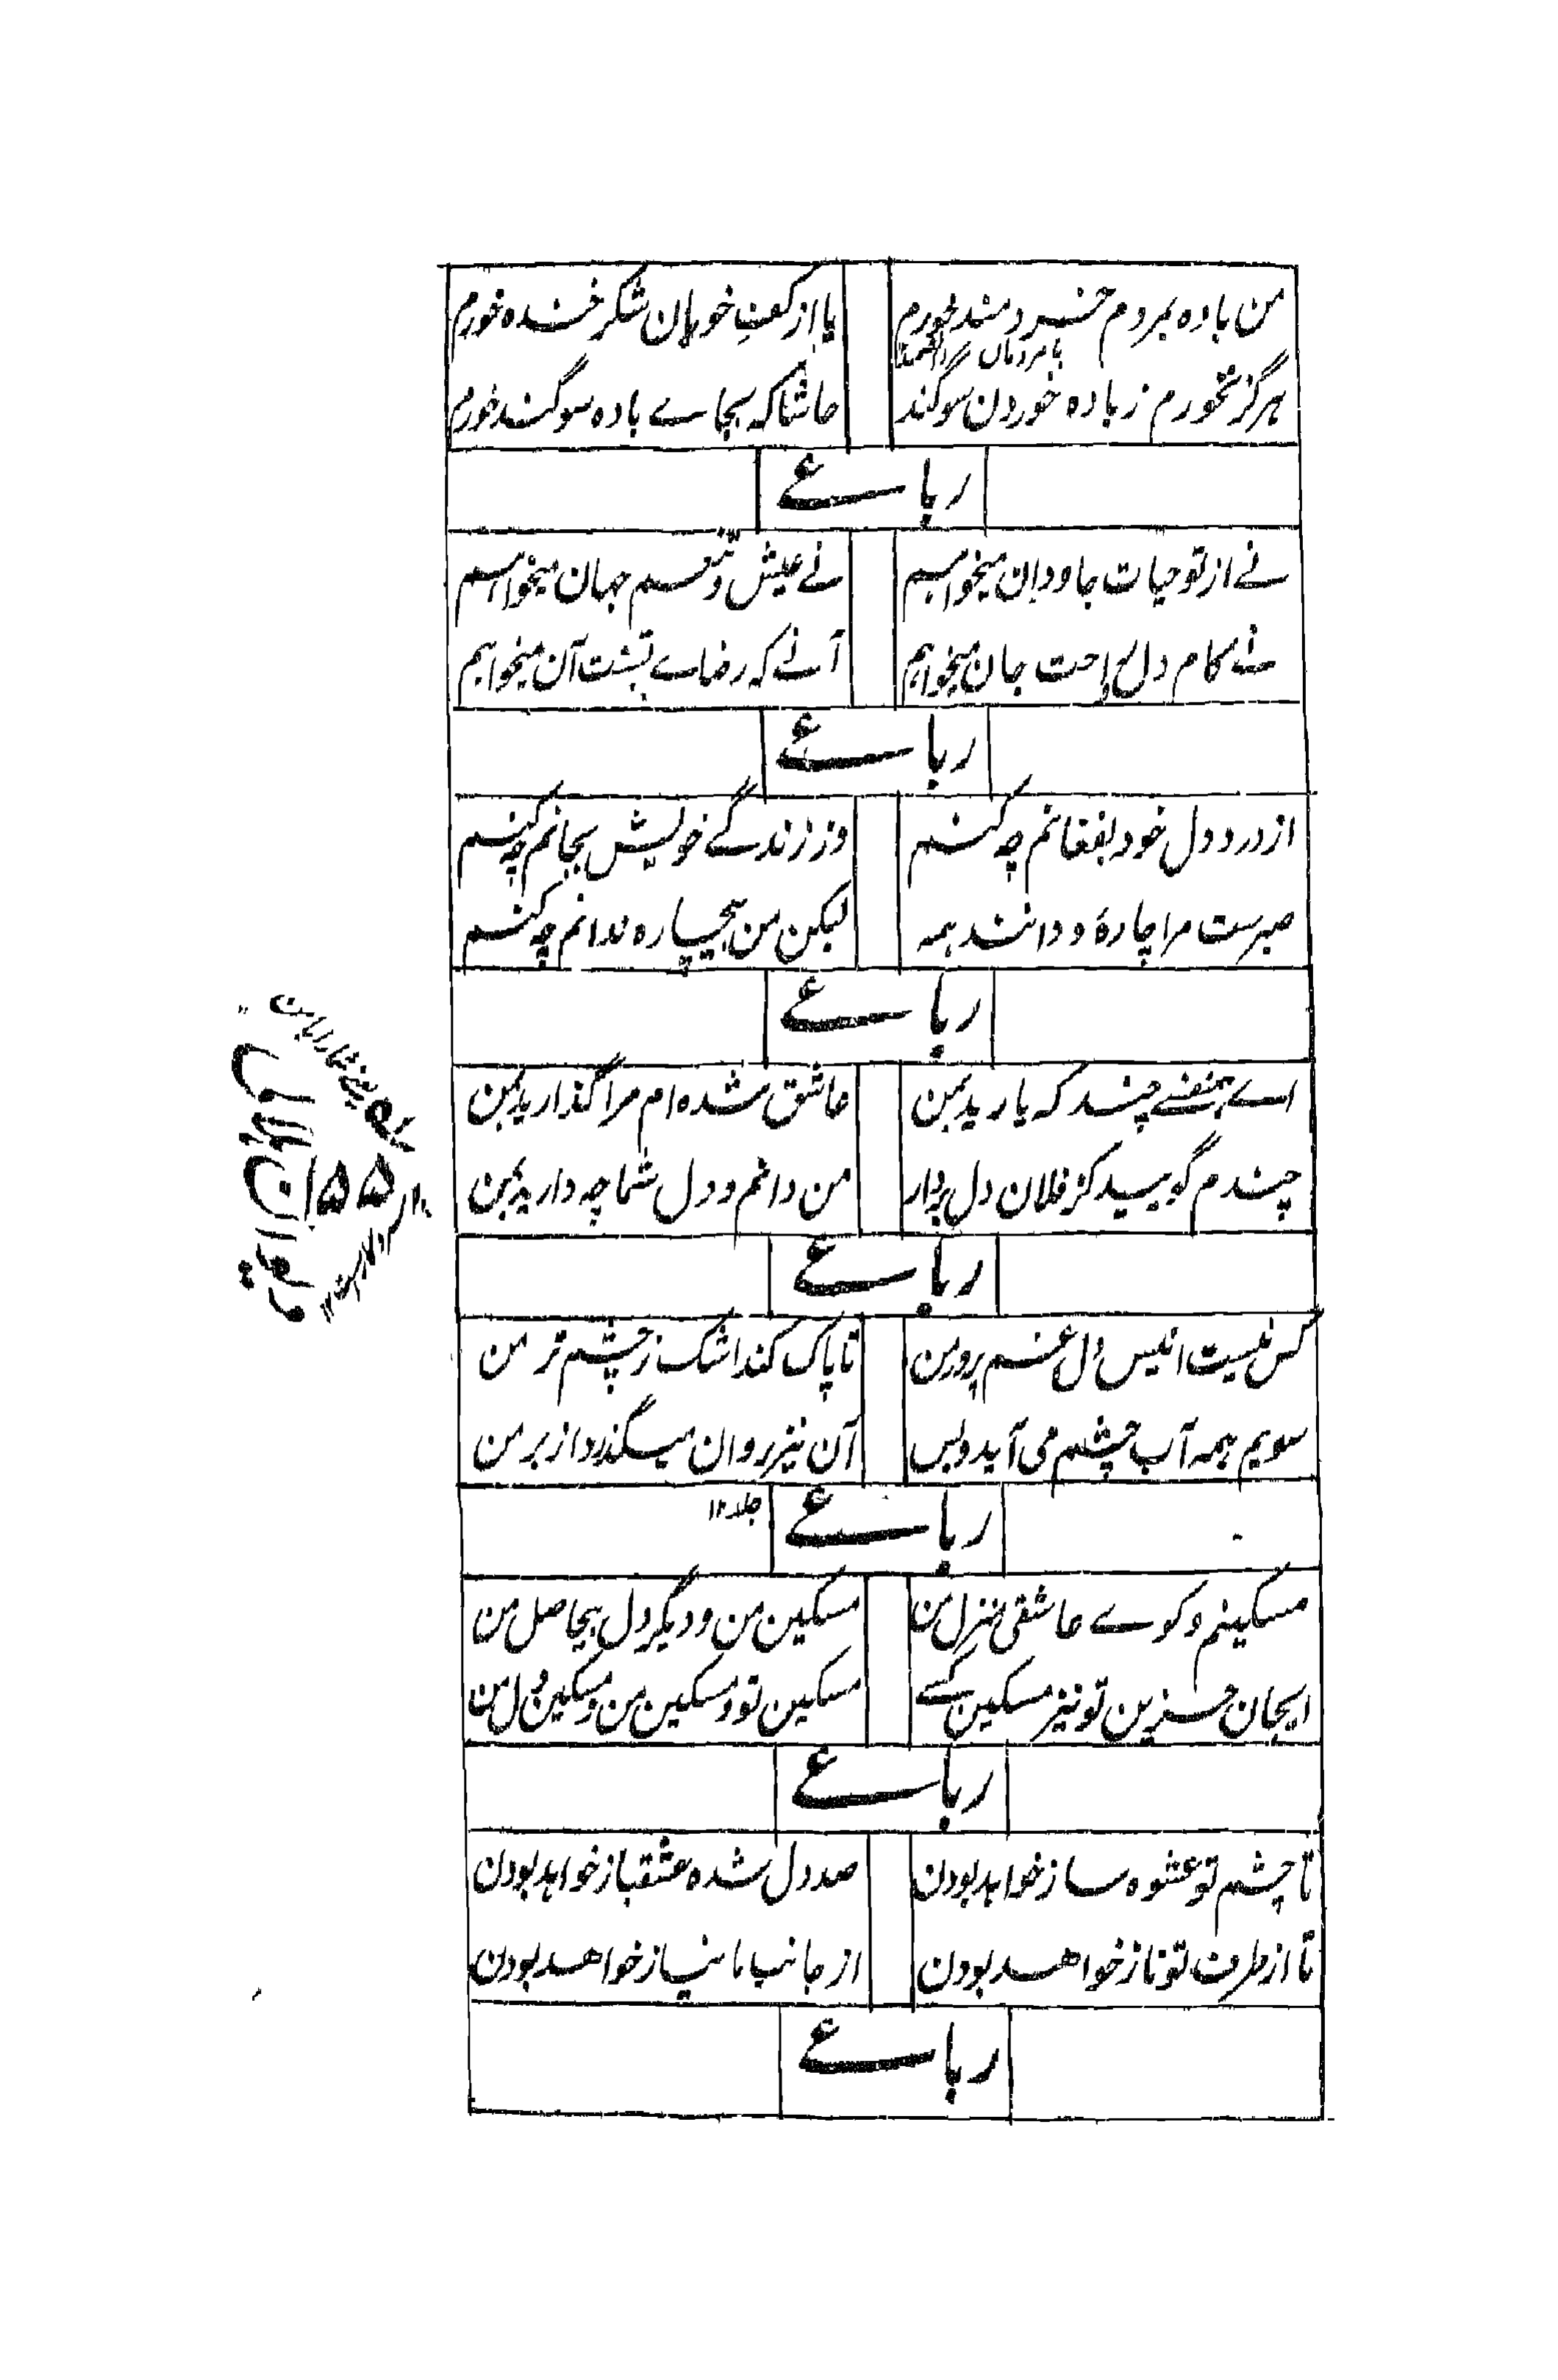 من باده بمردم خردمند خورم یا از کف خوبان شکر خنده خورم
بامردمان
هرگز نخورم ز باده خوردن سوگند حاشا که بجاے باده سوگند خورم
رباعے
نے از تو حیات جاودان میخواهم نے عیش و تنعم جهان میخواهم
نے کام دل و راحت جان میخواهم آنے که رضاے تست آن میخواهم
رباعے
از درد دل خود بفغانم چه کنم وز زندگے خویش بجانم چه کنم
صبرست مرا چارهٔ و دانند همه لیکن من بیچاره ندانم چه کنم
رباعے
اے همنفسے چند که یارید بمن عاشق شده ام مرا گذارید بمن
چندم گویید کز فلان دل بردار من دانم و دل شما چه دارید بمن
رباعے
کس نیست انیس دل غم پرور من تا پاک کند اشک ز چشم تر من
سویم همه آب چشم می آید و بس آن نیز روان میگذرد از بر من
رباعے
جلد ۱۲
مسکینم و کوے عاشقی منزل من مسکین من و دیگر دل بیحاصل من
ایجان حزین تو نیز مسکین کسے مسکین تو و مسکین من و مسکین دل من
رباعے
تا چشم تو عشوه ساز خواهد بودن صد دل شده عشقباز خواهد بودن
تا از طرف تو ناز خواهد بودن از جانب ما نیاز خواهد بودن
رباعے